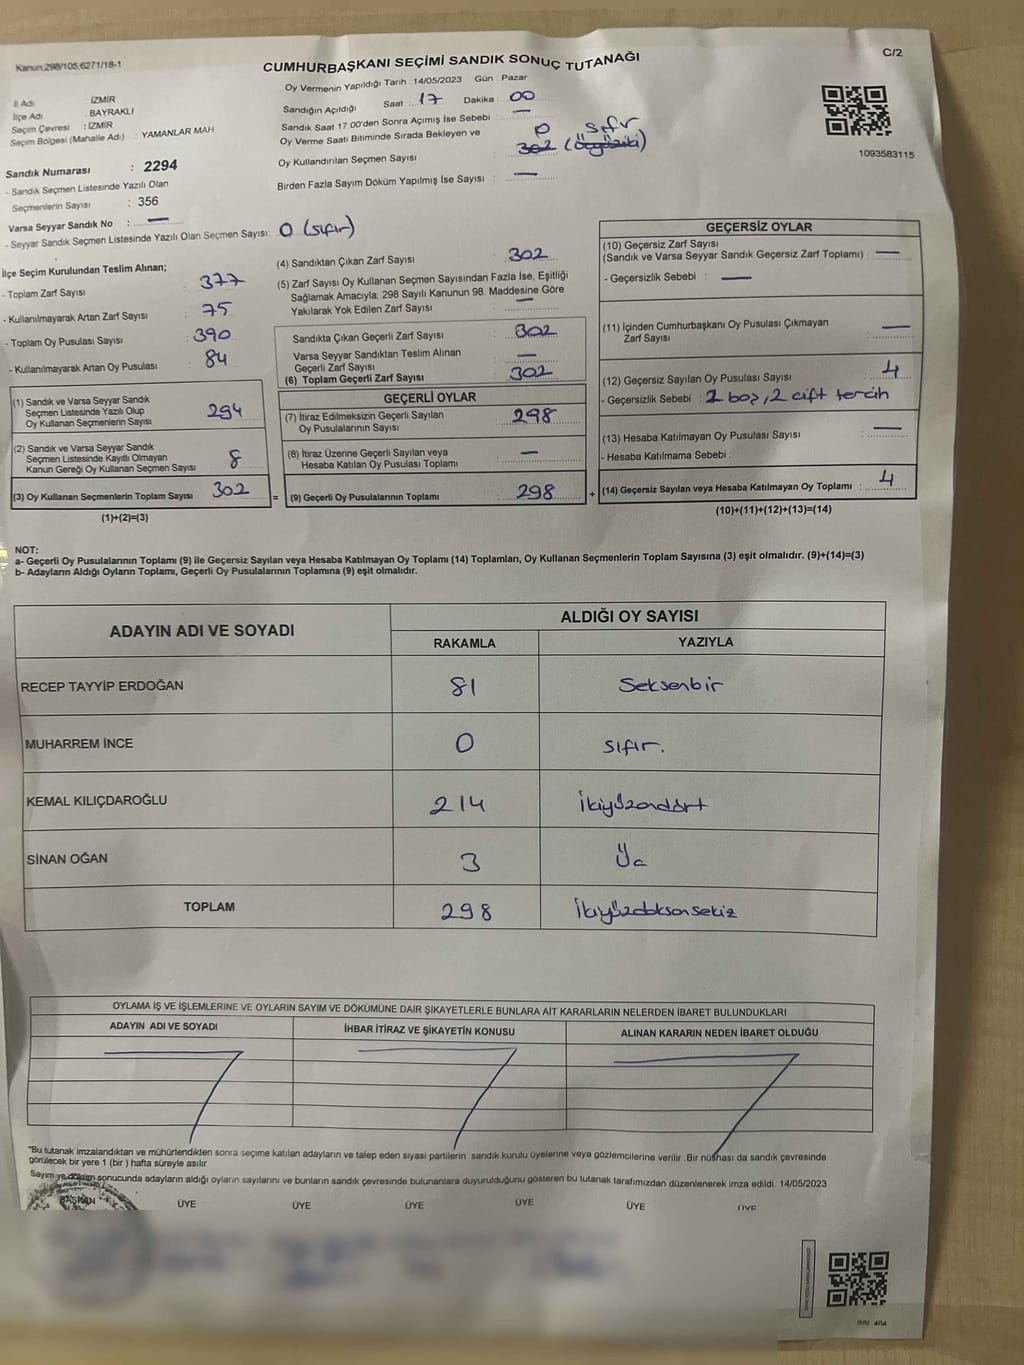 Kanun:298/105,6271/18-1
C/2
CUMHURBAŞKANI SEÇİMİ SANDIK SONUÇ TUTANAĞI
Oy Vermenin Yapıldığı Tarih 14/05/2023 Gün : Pazar
İl Adı : İZMİR
İlçe Adı : BAYRAKLI
Seçim Çevresi : İZMİR
Seçim Bölgesi (Mahalle Adı) : YAMANLAR MAH
Sandık Numarası : 2294
- Sandık Seçmen Listesinde Yazılı Olan
Seçmenlerin Sayısı : 356
Varsa Seyyar Sandık No : —
- Seyyar Sandık Seçmen Listesinde Yazılı Olan Seçmen Sayısı: 0 (sıfır)
Sandığın Açıldığı Saat : 17 Dakika : 00
Sandık Saat 17.00'den Sonra Açımış İse Sebebi : —
Oy Verme Saati Bitiminde Sırada Bekleyen ve
0 sıfır
Oy Kullandırılan Seçmen Sayısı : 302
Birden Fazla Sayım Döküm Yapılmış İse Sayısı : —
1093583115
İlçe Seçim Kurulundan Teslim Alınan;
- Toplam Zarf Sayısı : 377
- Kullanılmayarak Artan Zarf Sayısı : 75
- Toplam Oy Pusulası Sayısı : 390
- Kullanılmayarak Artan Oy Pusulası : 84
(1) Sandık ve Varsa Seyyar Sandık
Seçmen Listesinde Yazılı Olup
Oy Kullanan Seçmenlerin Sayısı : 294
(2) Sandık ve Varsa Seyyar Sandık
Seçmen Listesinde Kayıtlı Olmayan
Kanun Gereği Oy Kullanan Seçmen Sayısı : 8
(3) Oy Kullanan Seçmenlerin Toplam Sayısı : 302
(1)+(2)=(3)
(4) Sandıktan Çıkan Zarf Sayısı : 302
(5) Zarf Sayısı Oy Kullanan Seçmen Sayısından Fazla İse, Eşitliği
Sağlamak Amacıyla, 298 Sayılı Kanunun 98. Maddesine Göre
Yakılarak Yok Edilen Zarf Sayısı : —
Sandıkta Çıkan Geçerli Zarf Sayısı : 302
Varsa Seyyar Sandıktan Teslim Alınan
Geçerli Zarf Sayısı : —
(6) Toplam Geçerli Zarf Sayısı : 302
GEÇERLİ OYLAR
(7) İtiraz Edilmeksizin Geçerli Sayılan
Oy Pusulalarının Sayısı : 298
(8) İtiraz Üzerine Geçerli Sayılan veya
Hesaba Katılan Oy Pusulası Toplamı : —
= (9) Geçerli Oy Pusulalarının Toplamı : 298 +
GEÇERSİZ OYLAR
(10) Geçersiz Zarf Sayısı
(Sandık ve Varsa Seyyar Sandık Geçersiz Zarf Toplamı) : —
- Geçersizlik Sebebi : —
(11) İçinden Cumhurbaşkanı Oy Pusulası Çıkmayan
Zarf Sayısı : —
(12) Geçersiz Sayılan Oy Pusulası Sayısı : 4
- Geçersizlik Sebebi : 2 boş, 2 çift tercih
(13) Hesaba Katılmayan Oy Pusulası Sayısı : —
- Hesaba Katılmama Sebebi :
(14) Geçersiz Sayılan veya Hesaba Katılmayan Oy Toplamı : 4
(10)+(11)+(12)+(13)=(14)
NOT:
a- Geçerli Oy Pusulalarının Toplamı (9) ile Geçersiz Sayılan veya Hesaba Katılmayan Oy Toplamı (14) Toplamları, Oy Kullanan Seçmenlerin Toplam Sayısına (3) eşit olmalıdır. (9)+(14)=(3)
b- Adayların Aldığı Oyların Toplamı, Geçerli Oy Pusulalarının Toplamına (9) eşit olmalıdır.
ADAYIN ADI VE SOYADI ALDIĞI OY SAYISI
RAKAMLA YAZIYLA
RECEP TAYYİP ERDOĞAN 81 Seksenbir
MUHARREM İNCE 0 sıfır.
KEMAL KILIÇDAROĞLU 214 İkiyüzondört
SİNAN OĞAN 3 Üç
TOPLAM 298 İkiyüzdoksansekiz
OYLAMA İŞ VE İŞLEMLERİNE VE OYLARIN SAYIM VE DÖKÜMÜNE DAİR ŞİKAYETLERLE BUNLARA AİT KARARLARIN NELERDEN İBARET BULUNDUKLARI
ADAYIN ADI VE SOYADI İHBAR İTİRAZ VE ŞİKAYETİN KONUSU ALINAN KARARIN NEDEN İBARET OLDUĞU
"Bu tutanak imzalandıktan ve mühürlendikten sonra seçime katılan adayların ve talep eden siyasi partilerin sandık kurulu üyelerine veya gözlemcilerine verilir. Bir nüshası da sandık çevresinde
görülecek bir yere 1 (bir) hafta süreyle asılır.
Sayım ve döküm sonucunda adayların aldığı oyların sayılarını ve bunların sandık çevresinde bulunanlara duyurulduğunu gösteren bu tutanak tarafımızdan düzenlenerek imza edildi. 14/05/2023
BAŞKAN ÜYE ÜYE ÜYE ÜYE ÜYE ÜYE